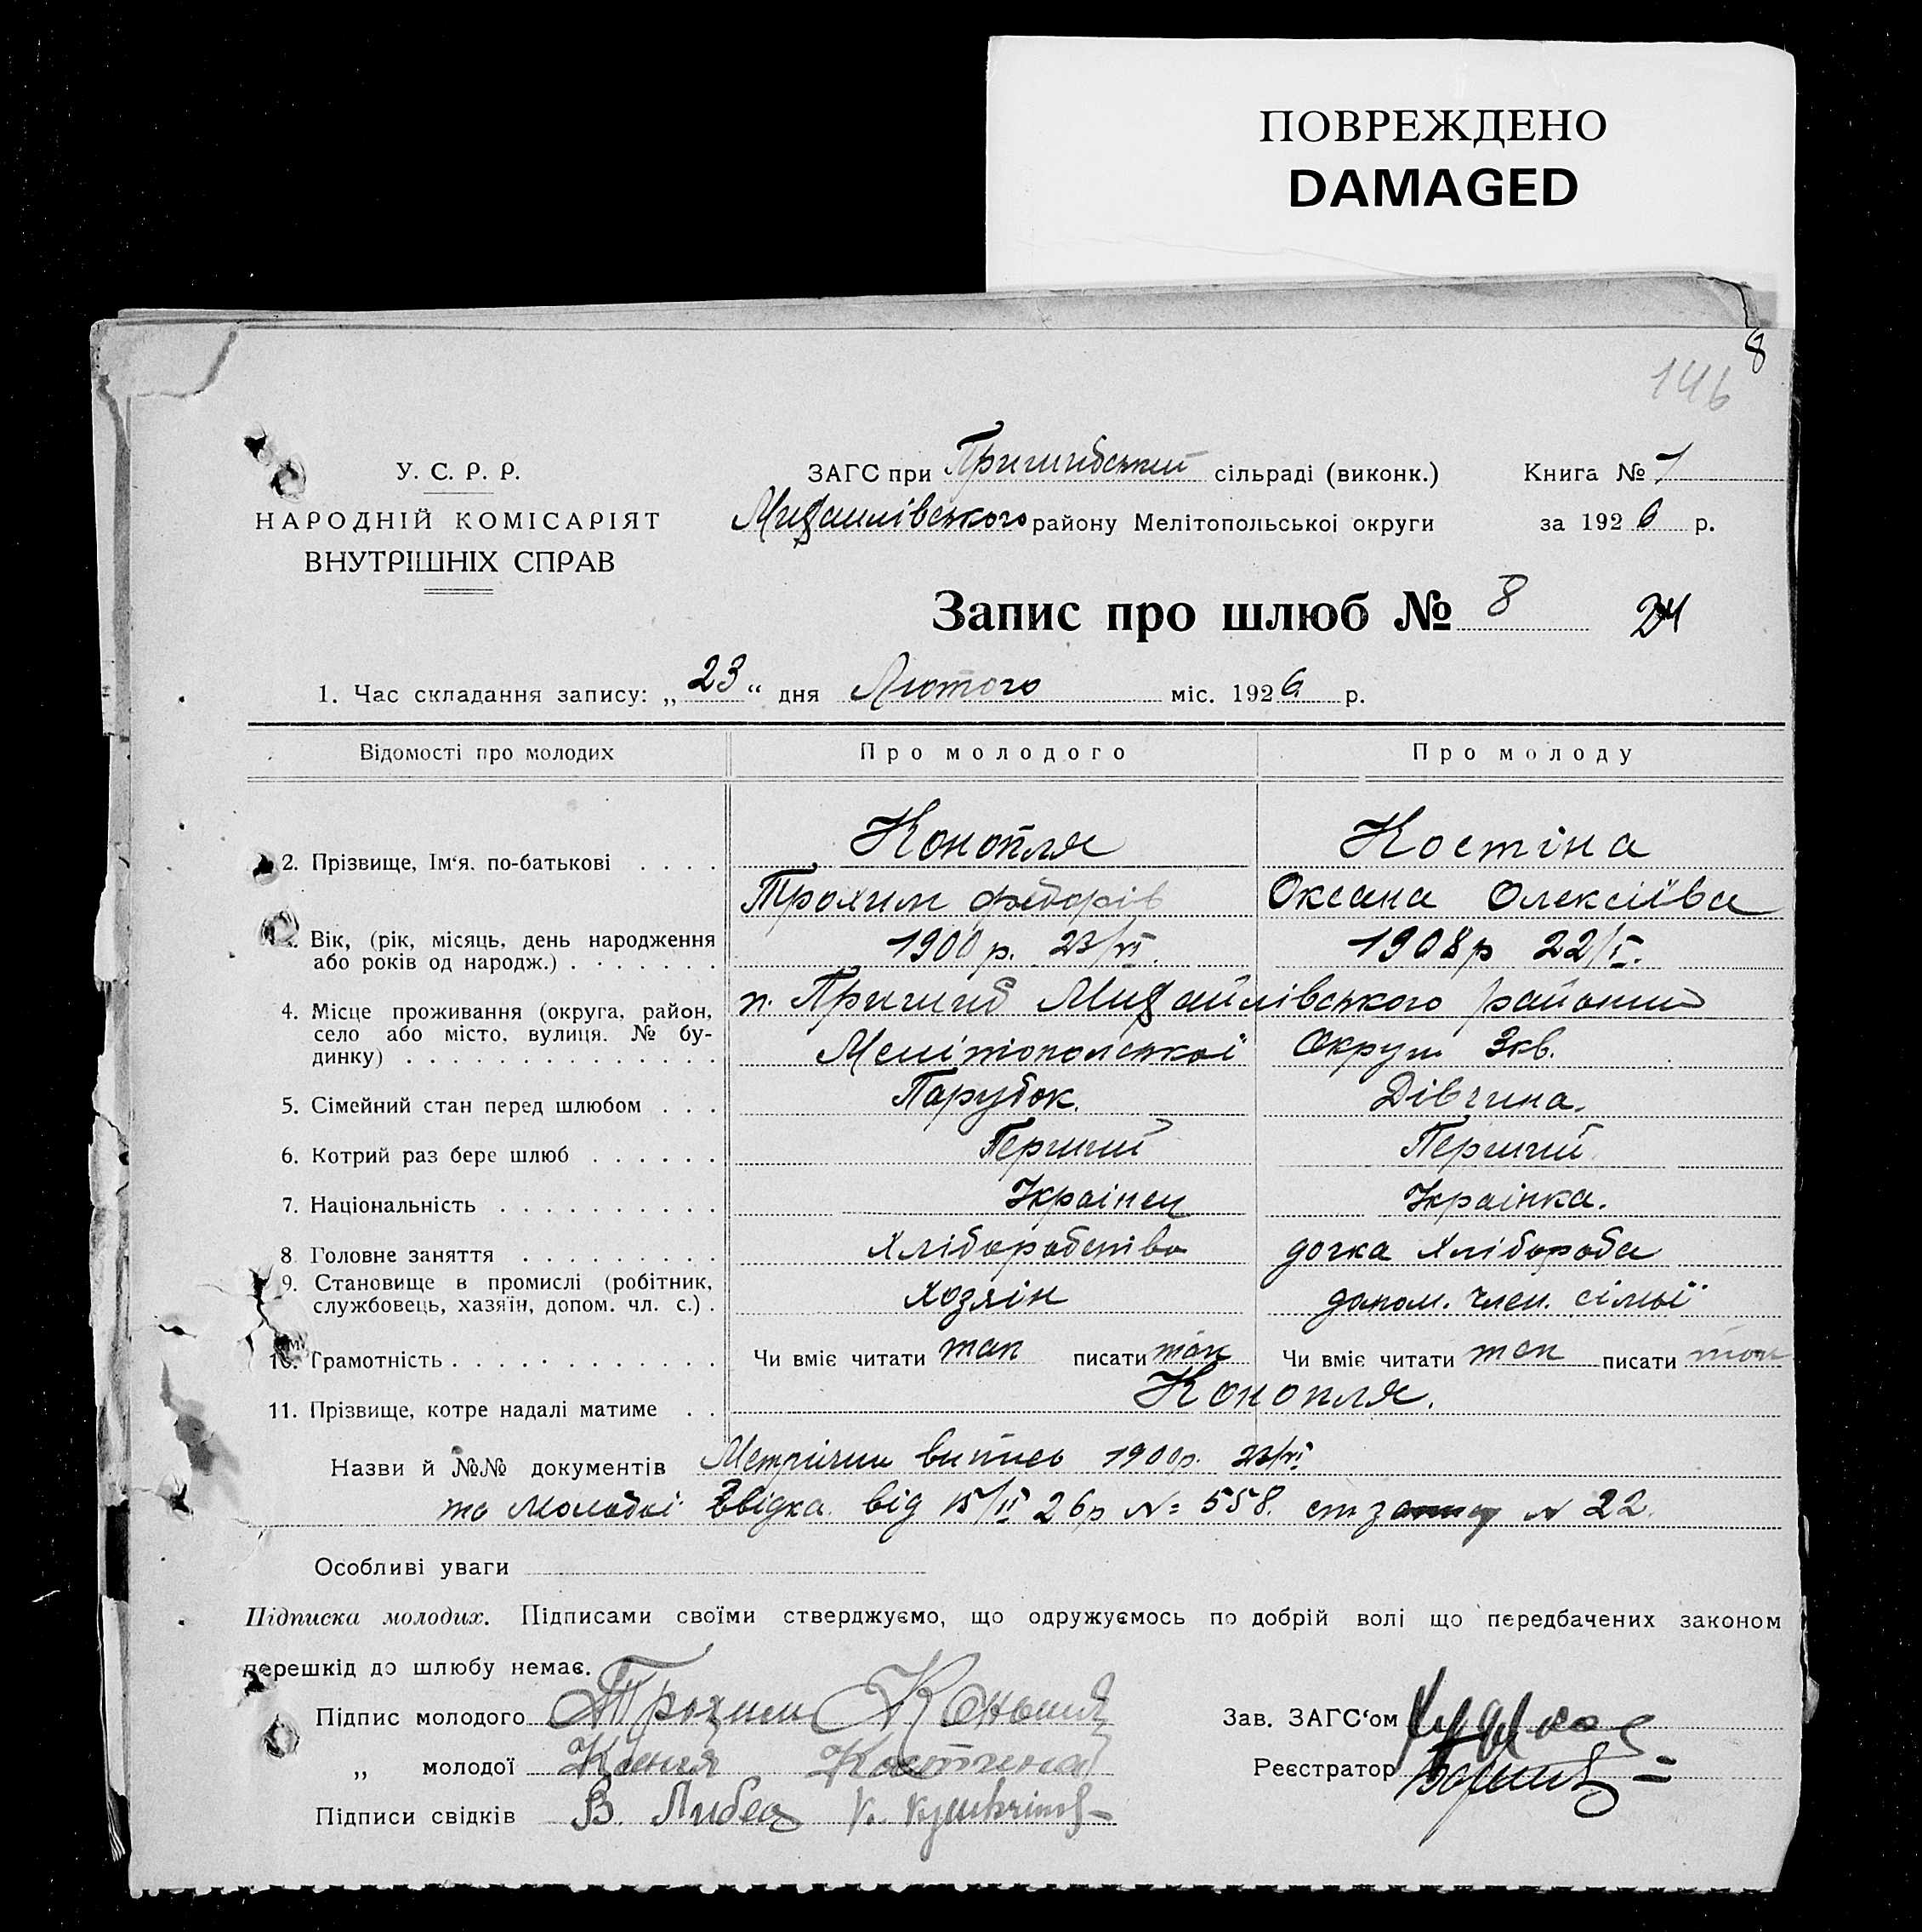 ПОВРЕЖДЕНО
DAMAGED
8
146
У. С. Р. Р.
НАРОДНІЙ КОМІСАРІЯТ
ВНУТРІШНІХ СПРАВ
ЗАГС при Пришибський сільраді (виконк.) Книга № 1
Михайлівського району Мелітопольської округи за 1926 р.
Запис про шлюб № 8 24
1. Час складання запису: „23“ дня Лютого міс. 1926 р.
Відомості про молодих Про молодого Про молоду
2. Прізвище, Ім‘я. по-батькові . . . . Конопля Костіна
Трохим Федорів Оксана Олексіїва
Вік, (рік, місяць, день народження 1900 р. 23/VI. 1908 р 22/I.
або років од народж.) . . . . . . .
4. Місце проживання (округа, район, п. Пришиб Михайлівського району
село або місто, вулиця. № бу- Мелітопольської Округи Зкв.
динку) . . . . . . . . . . . . . .
5. Сімейний стан перед шлюбом . . . Парубок. Дівчина.
6. Котрий раз бере шлюб . . . . . . Перший Перший
7. Національність . . . . . . . . . . Українец Українка.
8 Головне заняття . . . . . . . . . Хліборобство дочка хлібороба
9. Становище в промислі (робітник, хозяін допом. член. сімьї
службовець, хазяїн, допом. чл. с.) .
10. Грамотність . . . . . . . . . . . . Чи вміє читати так писати так Чи вміє читати так писати так
11. Прізвище, котре надалі матиме . . Конопля.
Назви й №№ документів Метричи випись 1900р. 23/VI
та молодої звідка від 15/II 26р № 558. ст № 22.
Особливі уваги
Підписка молодих. Підписами своїми стверджуємо, що одружуємось по добрій волі що передбачених законом
перешкід до шлюбу немає.
Підпис молодого Трохим Зав. ЗАГС‘ом
„ молодої Ксеня Костина Реєстратор
Підписи свідків В.